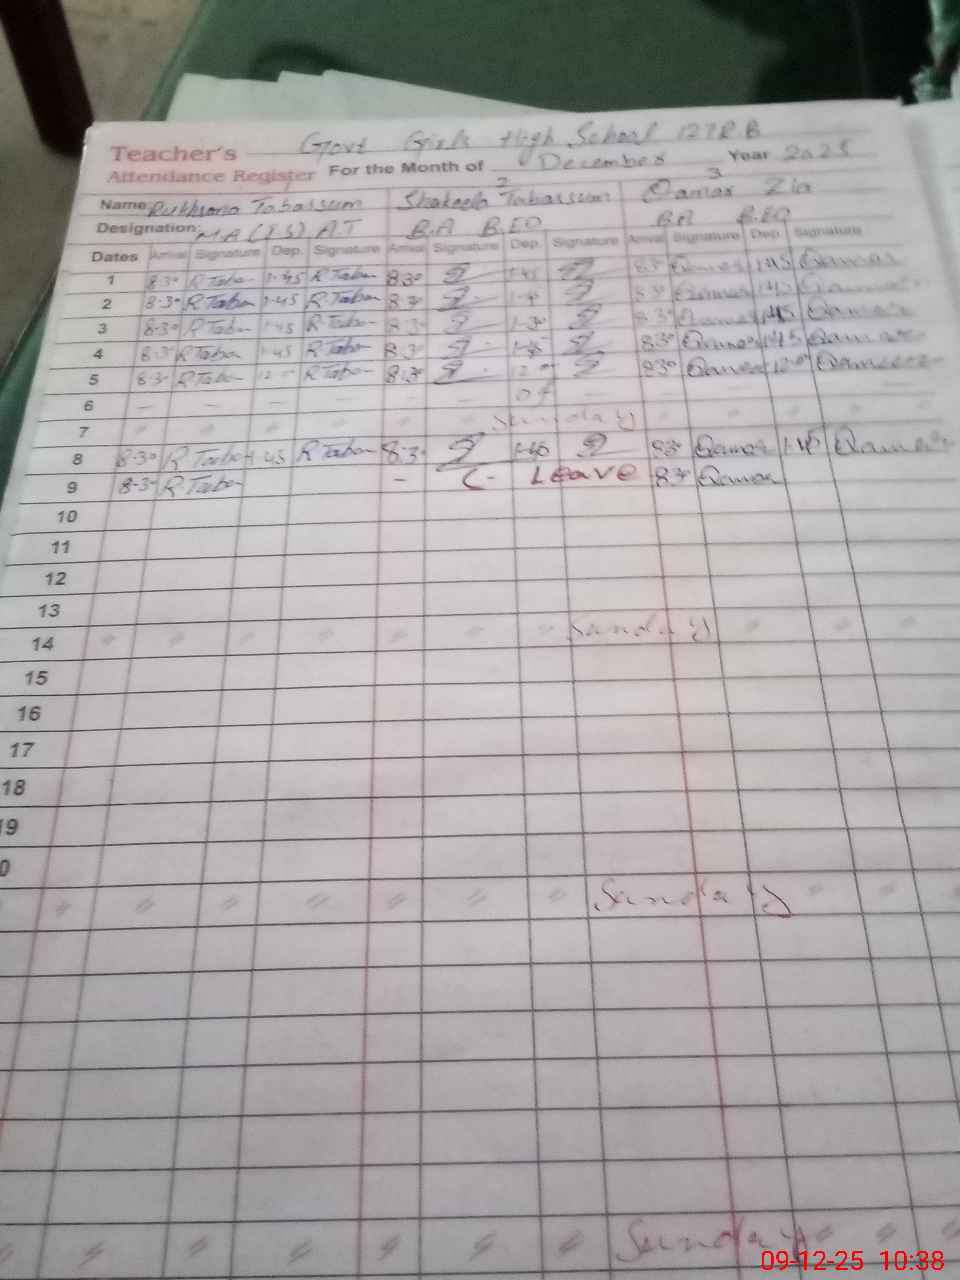 Govt Girls High School 127 R.B
Teacher's
Attendance Register For the Month of December Year 2025
1 2 3
Name Rukhsana Tabassum Shakeela Tabassum Qamar Zia
Designation: M.A (I.S) A.T B.A B.ED B.A B.ED
Dates Arrival Signature Dep. Signature Arrival Signature Dep. Signature Arrival Signature Dep. Signature
1 8:30 R Taban 1-45 R Taban 8:30 1-45 8:30 Qamar 1:45 Qamar
2 8:30 R Taban 1-45 R Taban 8:30 8:30 Qamar 1:45 Qamar
3 8:30 R Taban 1-45 R Taban 8:30 1-30 8:30 Qamar 1:45 Qamar
4 8:30 R Taban 1-45 R Taban 8:30 1-45 8:30 Qamar 1:45 Qamar
5 8:30 R Taban 12-00 R Taban 8:30 12-00 8:30 Qamar 12-00 Qamar
6 — — — — — — of
7 Sunday
8 8-30 R Taban 1-45 R Taban 8:30 1-45 8:30 Qamar 1-45 Qamar
9 8-30 R Taban - C- Leave 8:30 Qamar
10
11
12
13
14 Sunday
15
16
17
18
19
0
Sunday
Sunday
09-12-25 10:38